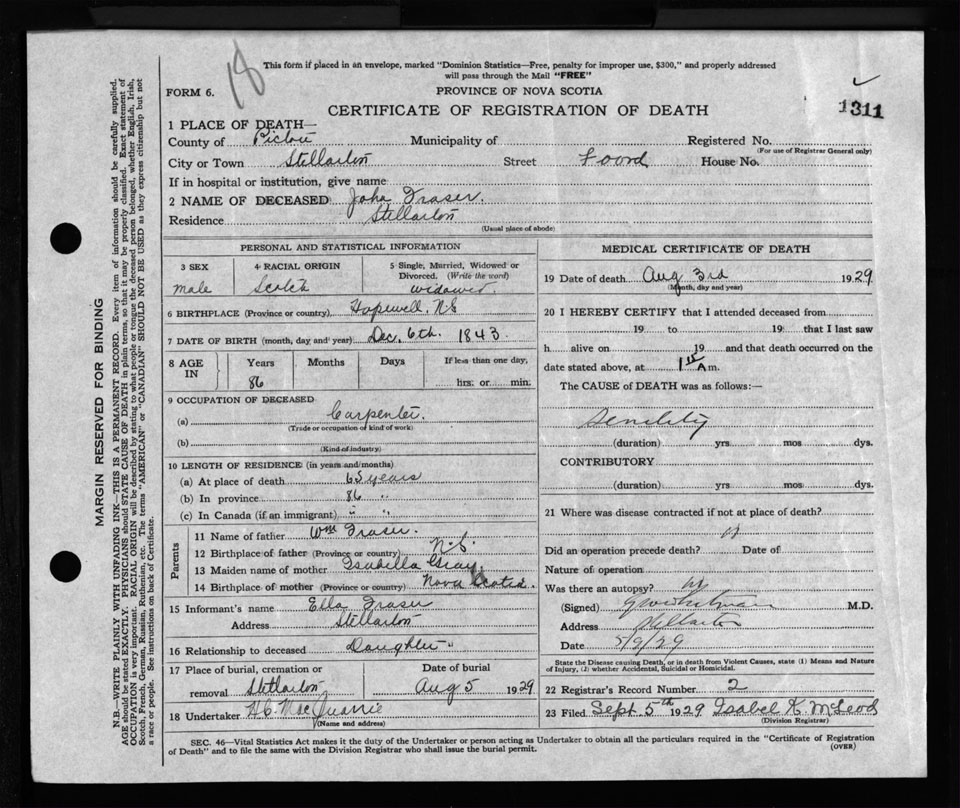 18
This form if placed in an envelope, marked "Dominion Statistics—Free, penalty for improper use, $300," and properly addressed
will pass through the Mail "FREE"
FORM 6.
PROVINCE OF NOVA SCOTIA
CERTIFICATE OF REGISTRATION OF DEATH
1311
1 PLACE OF DEATH—
County of Pictou Municipality of Registered No.
(For use of Registrar General only)
City or Town Stellarton Street Foord House No.
If in hospital or institution, give name
2 NAME OF DECEASED John Fraser.
Residence Stellarton
(Usual place of abode)
PERSONAL AND STATISTICAL INFORMATION
3 SEX 4 RACIAL ORIGIN 5 Single, Married, Widowed or
Divorced. (Write the word)
male Scotch widower
6 BIRTHPLACE (Province or country) Hopewell, NS
7 DATE OF BIRTH (month, day and year) Dec. 6th. 1843.
8 AGE IN Years Months Days If less than one day,
86 hrs. or min.
9 OCCUPATION OF DECEASED
(a) Carpenter.
(Trade or occupation of kind of work)
(b)
(Kind of industry)
10 LENGTH OF RESIDENCE (in years and months)
(a) At place of death 65 years
(b) In province 86 "
(c) In Canada (if an immigrant) " "
Parents
11 Name of father Wm Fraser.
12 Birthplace of father (Province or country) N.S.
13 Maiden name of mother Isabella Gray
14 Birthplace of mother (Province or country) Nova Scotia.
15 Informant's name Ella Fraser
Address Stellarton
16 Relationship to deceased Daughter
17 Place of burial, cremation or Date of burial
removal Stellarton Aug 5 1929
18 Undertaker H.C. MacQuarrie
(Name and address)
MEDICAL CERTIFICATE OF DEATH
19 Date of death Aug 3rd 1929
(Month, day and year)
20 I HEREBY CERTIFY that I attended deceased from
19 to 19 that I last saw
h alive on 19 and that death occurred on the
date stated above, at 1 A m.
The CAUSE of DEATH was as follows:—
Senility
(duration) yrs mos dys.
CONTRIBUTORY
(duration) yrs mos dys.
21 Where was disease contracted if not at place of death?
Did an operation precede death? Date of
Nature of operation
Was there an autopsy?
(Signed) M.D.
Address Stellarton
Date 5/9/29
State the Disease causing Death, or in death from Violent Causes, state (1) Means and Nature
of Injury, (2) whether Accidental, Suicidal or Homicidal.
22 Registrar's Record Number 2
23 Filed Sept. 5th 1929 Isabel K. McLeod
(Division Registrar)
SEC. 46—Vital Statistics Act makes it the duty of the Undertaker or person acting as Undertaker to obtain all the particulars required in the "Certificate of Registration
of Death" and to file the same with the Division Registrar who shall issue the burial permit.
(OVER)
MARGIN RESERVED FOR BINDING
N.B.—WRITE PLAINLY WITH UNFADING INK—THIS IS A PERMANENT RECORD. Every item of information should be carefully supplied.
AGE should be stated EXACTLY. PHYSICIANS should STATE CAUSE OF DEATH in plain terms, so that it may be properly classified. Exact statement of
OCCUPATION is very important. RACIAL ORIGIN will be described by stating to what people or tongue the deceased person belonged, whether English, Irish,
Scotch, French, German, Russian, Ruthenian, etc. The terms "AMERICAN" or "CANADIAN" SHOULD NOT BE USED as they express citizenship but not
a race or people. See instructions on back of Certificate.